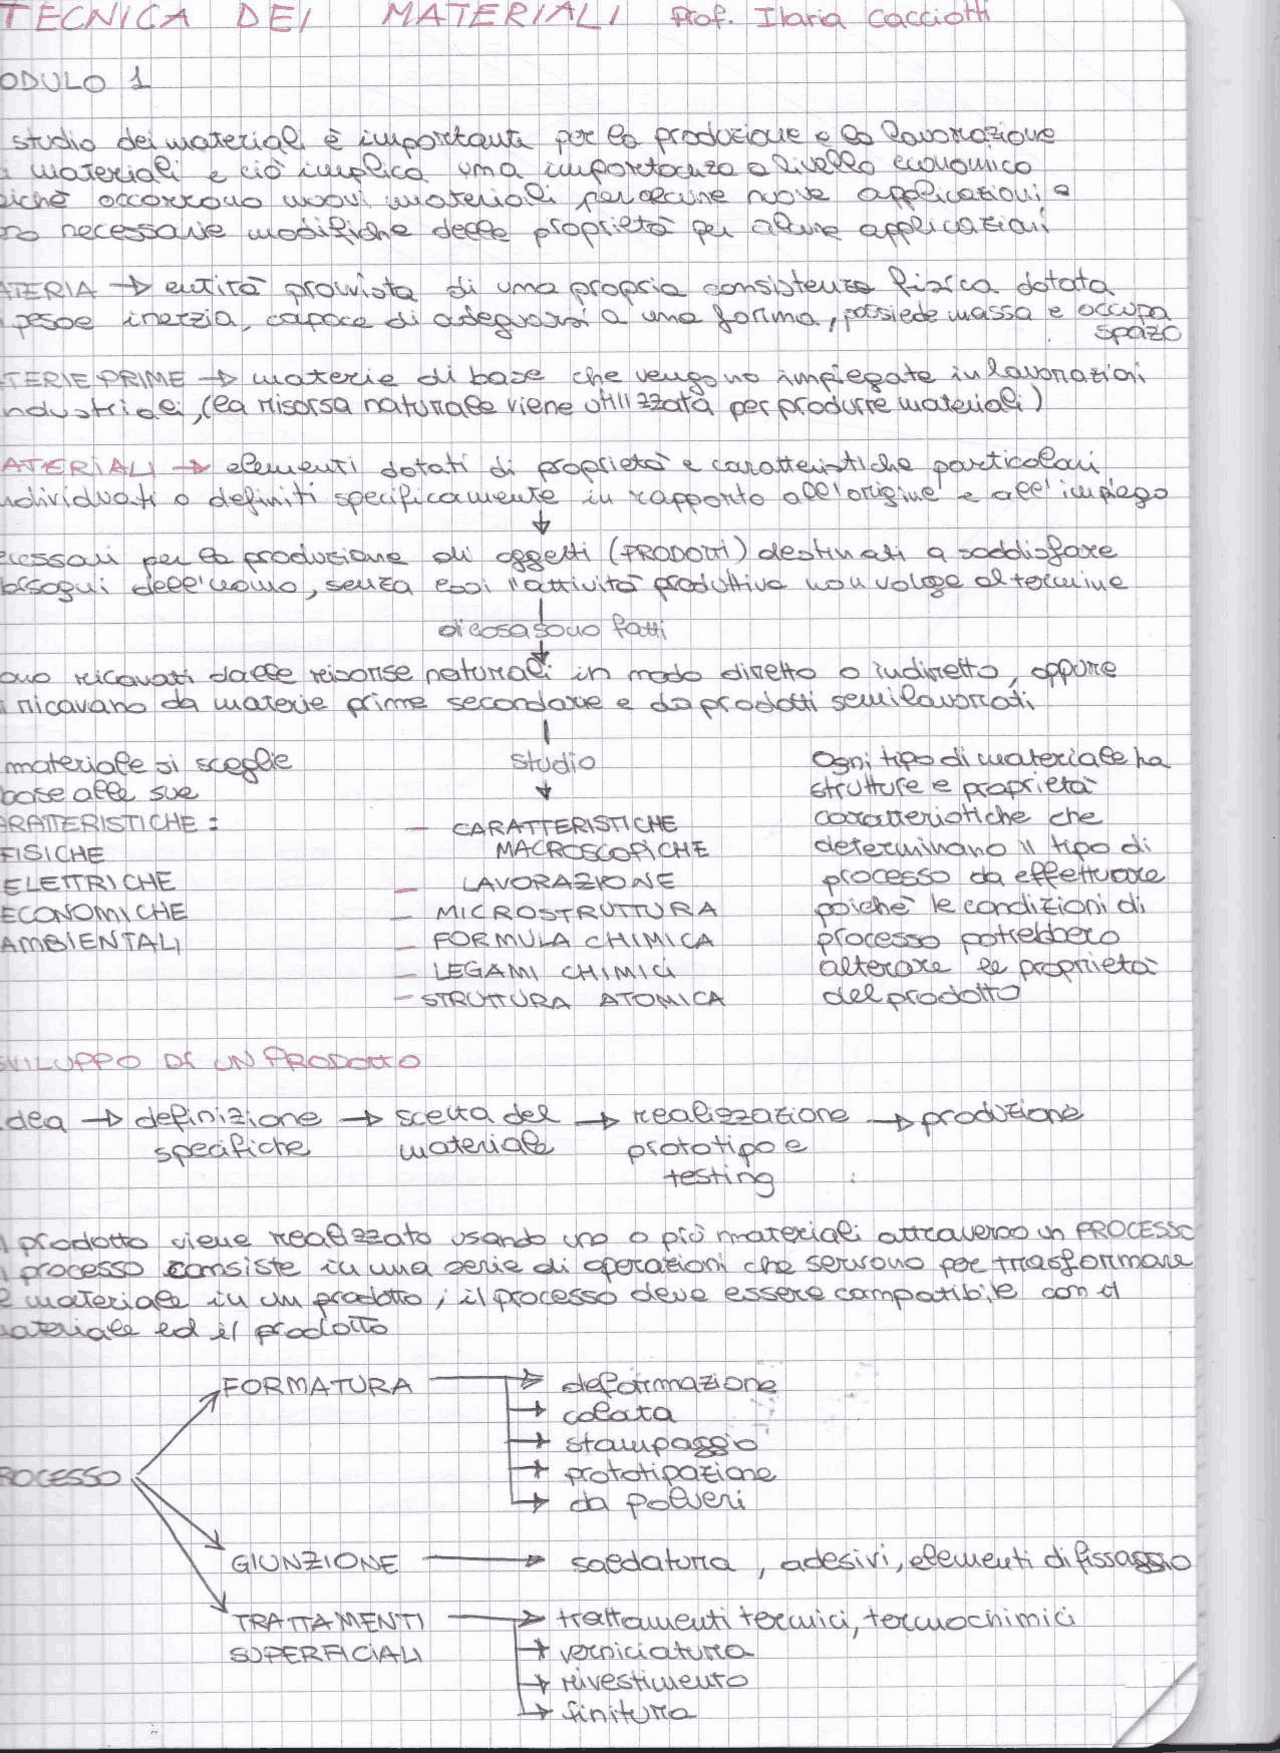 TECNICA DEI MATERIALI Prof. Ilaria Cacciotti
ODULO 1
studio dei materiali è importante per la produzione e la lavorazione
materiali e ciò implica una importanza a livello economico
iché occorrono nuovi materiali per alcune nuove applicazioni o
no necessarie modifiche delle proprietà per alcune applicazioni
ATERIA → entità provvista di una propria consistenza fisica dotata
peso e inerzia, capace di adeguarsi a una forma, possiede massa e occupa
spazio
TERIE PRIME → materie di base che vengono impiegate in lavorazioni
ndustriali, (la risorsa naturale viene utilizzata per produrre materiali)
ATERIALI → elementi dotati di proprietà e caratteristiche particolari
ndividuati o definiti specificamente in rapporto all'origine e all'impiego
↓
cessari per la produzione di oggetti (PRODOTTI) destinati a soddisfare
bisogni dell'uomo, senza essi l'attività produttiva non volge al termine
di cosa sono fatti
↓
ono ricavati dalle risorse naturali in modo diretto o indiretto, oppure
ricavano da materie prime secondarie e da prodotti semilavorati
materiale si sceglie
base alle sue
RATTERISTICHE:
FISICHE
ELETTRICHE
ECONOMICHE
AMBIENTALI
studio
↓
— CARATTERISTICHE
MACROSCOPICHE
— LAVORAZIONE
— MICROSTRUTTURA
— FORMULA CHIMICA
— LEGAMI CHIMICI
— STRUTTURA ATOMICA
Ogni tipo di materiale ha
strutture e proprietà
caratteristiche che
determinano il tipo di
processo da effettuare
poiché le condizioni di
processo potrebbero
alterare le proprietà
del prodotto
SVILUPPO DI UN PRODOTTO
Idea → definizione → scelta del → realizzazione → produzione
specifiche materiale prototipo e
testing
prodotto viene realizzato usando uno o più materiali attraverso un PROCESSO
processo consiste in una serie di operazioni che servono per trasformare
materiale in un prodotto; il processo deve essere compatibile con il
ateriale ed il prodotto
ROCESSO
FORMATURA → deformazione
→ colata
→ stampaggio
→ prototipazione
→ da polveri
GIUNZIONE → saldatura, adesivi, elementi di fissaggio
TRATTAMENTI → trattamenti termici, termochimici
SUPERFICIALI → verniciatura
→ rivestimento
→ finitura